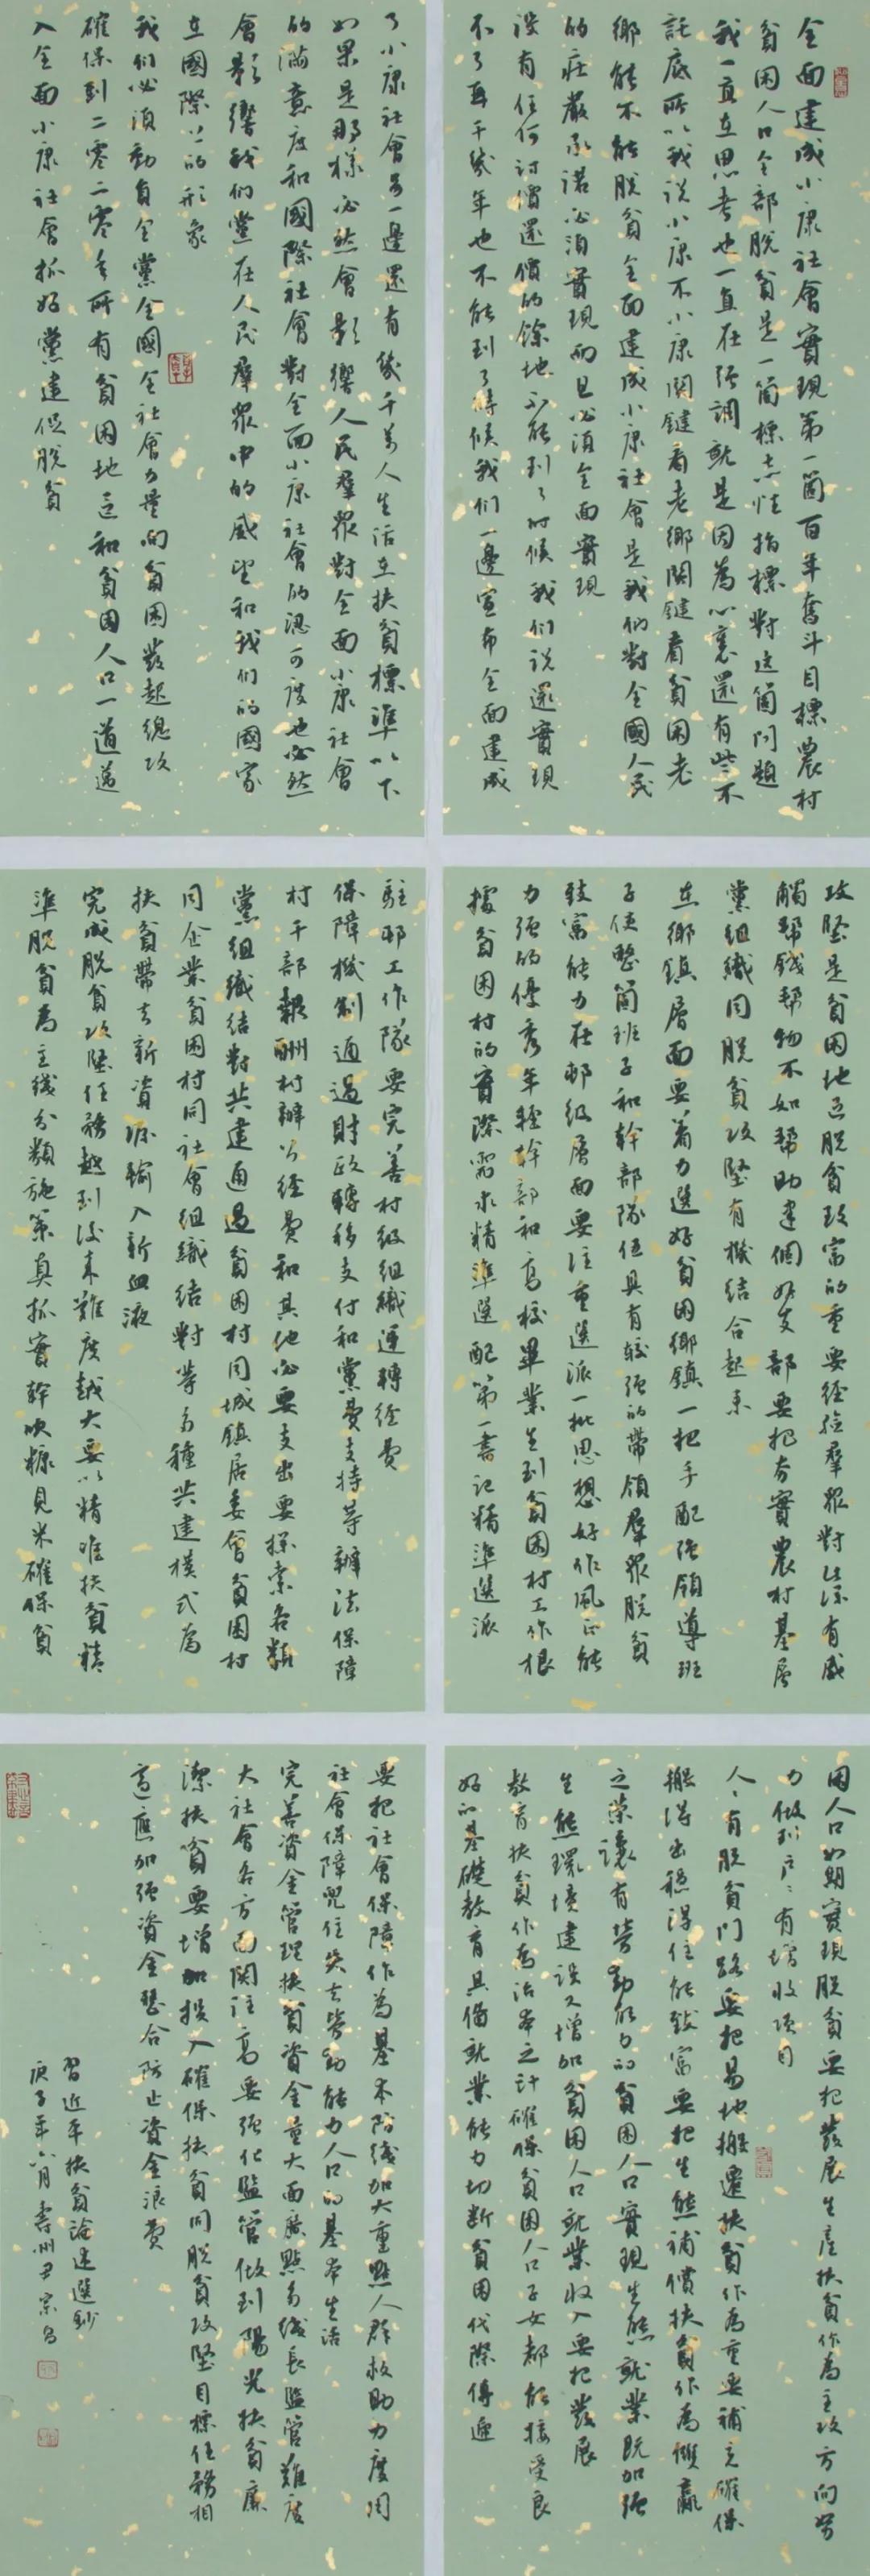 全面建成小康社會實現第一箇百年奮斗目標農村
貧困人口全部脫貧是一箇標志性指標對這箇問題
我一直在思考也一直在强調就是因為心裏還有些不
託底所以我説小康不小康関鍵看老鄉関鍵看貧困老
鄉能不能脫貧全面建成小康社會是我們對全國人民
的莊嚴承諾必須實現而且必須全面實現
没有任何討價還價的餘地不能到了时候我们说還實現
不了再干幾年也不能到了時候我们一邊宣布全面建成
了小康社會另一邊還有幾千萬人生活在扶貧標準以下
如果是那樣必然會影響人民羣眾對全面小康社會
的滿意度和國際社會對全面小康社會的認可度也必然
會影響我们黨在人民羣眾中的威望和我们的國家
在國際上的形象
我们必須動員全黨全國全社會力量向貧困發起總攻
確保到二零二零年所有貧困地區和貧困人口一道邁
入全面小康社會抓好黨建促脫貧
攻堅是貧困地區脫貧致富的重要經驗羣眾對此深有感
觸幫錢幫物不如幫助建個好支部要把夯實農村基層
黨組織同脫貧攻堅有機結合起來
在鄉鎮層面要着力選好貧困鄉鎮一把手配强領導班
子使整箇班子和幹部隊伍具有較强的帶領羣眾脫貧
致富能力在邨級層面要注重選派一批思想好作風正能
力强的優秀年輕幹部和高校畢業生到貧困村工作根
據貧困村的實際需求精準選配第一書記精準選派
駐邨工作隊要完善村級組織運轉經費
保障機制通過財政轉移支付和黨費支持等辦法保障
村干部報酬村辦公經費和其他必要支出要探索各類
黨組織結對共建通過貧困村同城鎮居委會貧困村
同企業貧困村同社會組織結對等多種共建模式為
扶貧帶去新資源輸入新血液
完成脫貧攻堅任務越到後來難度越大要以精准扶貧精
準脫貧為主綫分類施策真抓實幹吹糠見米確保貧
困人口如期實現脫貧要把發展生産扶貧作為主攻方向努
力做到戶〻有增收项目
人〻有脫貧門路要把易地搬遷扶貧作為重要補充確保
搬得出穩得住能致富要把生態補償扶貧作為雙贏
之策讓有勞動能力的貧困人口實現生態就業既加强
生態環境建設又增加貧困人口就業收入要把發展
教育扶貧作為治本之計確保貧困人口子女都能接受良
好的基礎教育具備就業能力切斷貧困代際傳遞
要把社會保障作為基本防綫加大重點人群救助力度用
社會保障兜住失去勞動能力人口的基本生活
完善資金管理扶貧資金量大面廣點多綫長監管難度
大社會各方面関注高要强化監管做到陽光扶貧廉
潔扶貧要增加投入確保扶貧同脫貧攻堅目標任務相
適應加强資金整合防止資金浪費
習近平扶貧論述選鈔
庚子年六月壽州尹宗多